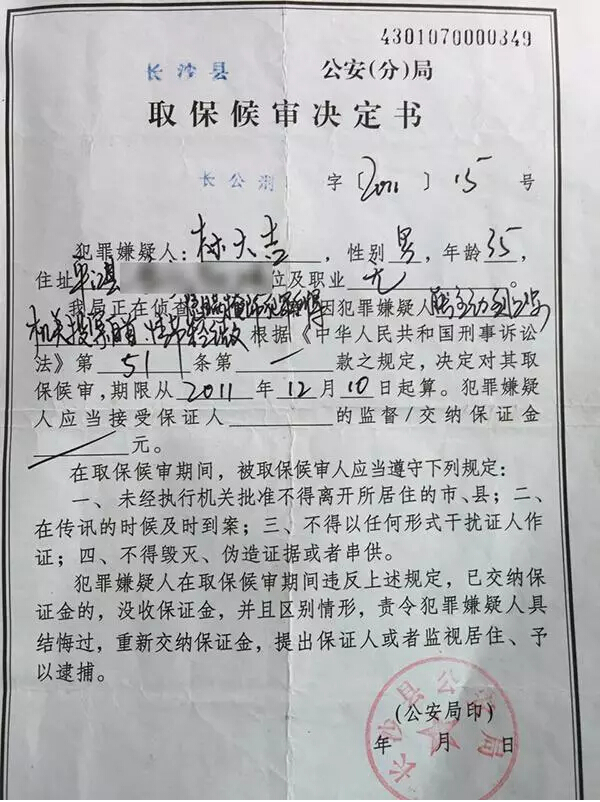 4301070000349
长沙县 公安(分)局
取保候审决定书
长公刑 字〔2011〕15号
犯罪嫌疑人:林大吉,性别男,年龄35,
住址平江县 位及职业无。
我局正在侦查 因犯罪嫌疑人能主动到公安
机关投案自首,情节轻微 根据《中华人民共和国刑事诉讼
法》第51条第一款之规定,决定对其取
保候审,期限从2011年12月10日起算。犯罪嫌疑
人应当接受保证人 的监督/交纳保证金
元。
在取保候审期间,被取保候审人应当遵守下列规定:
一、未经执行机关批准不得离开所居住的市、县;二、
在传讯的时候及时到案;三、不得以任何形式干扰证人作
证;四、不得毁灭、伪造证据或者串供。
犯罪嫌疑人在取保候审期间违反上述规定,已交纳保
证金的,没收保证金,并且区别情形,责令犯罪嫌疑人具
结悔过,重新交纳保证金,提出保证人或者监视居住、予
以逮捕。
(公安局印)
年 月 日
长沙县公安局